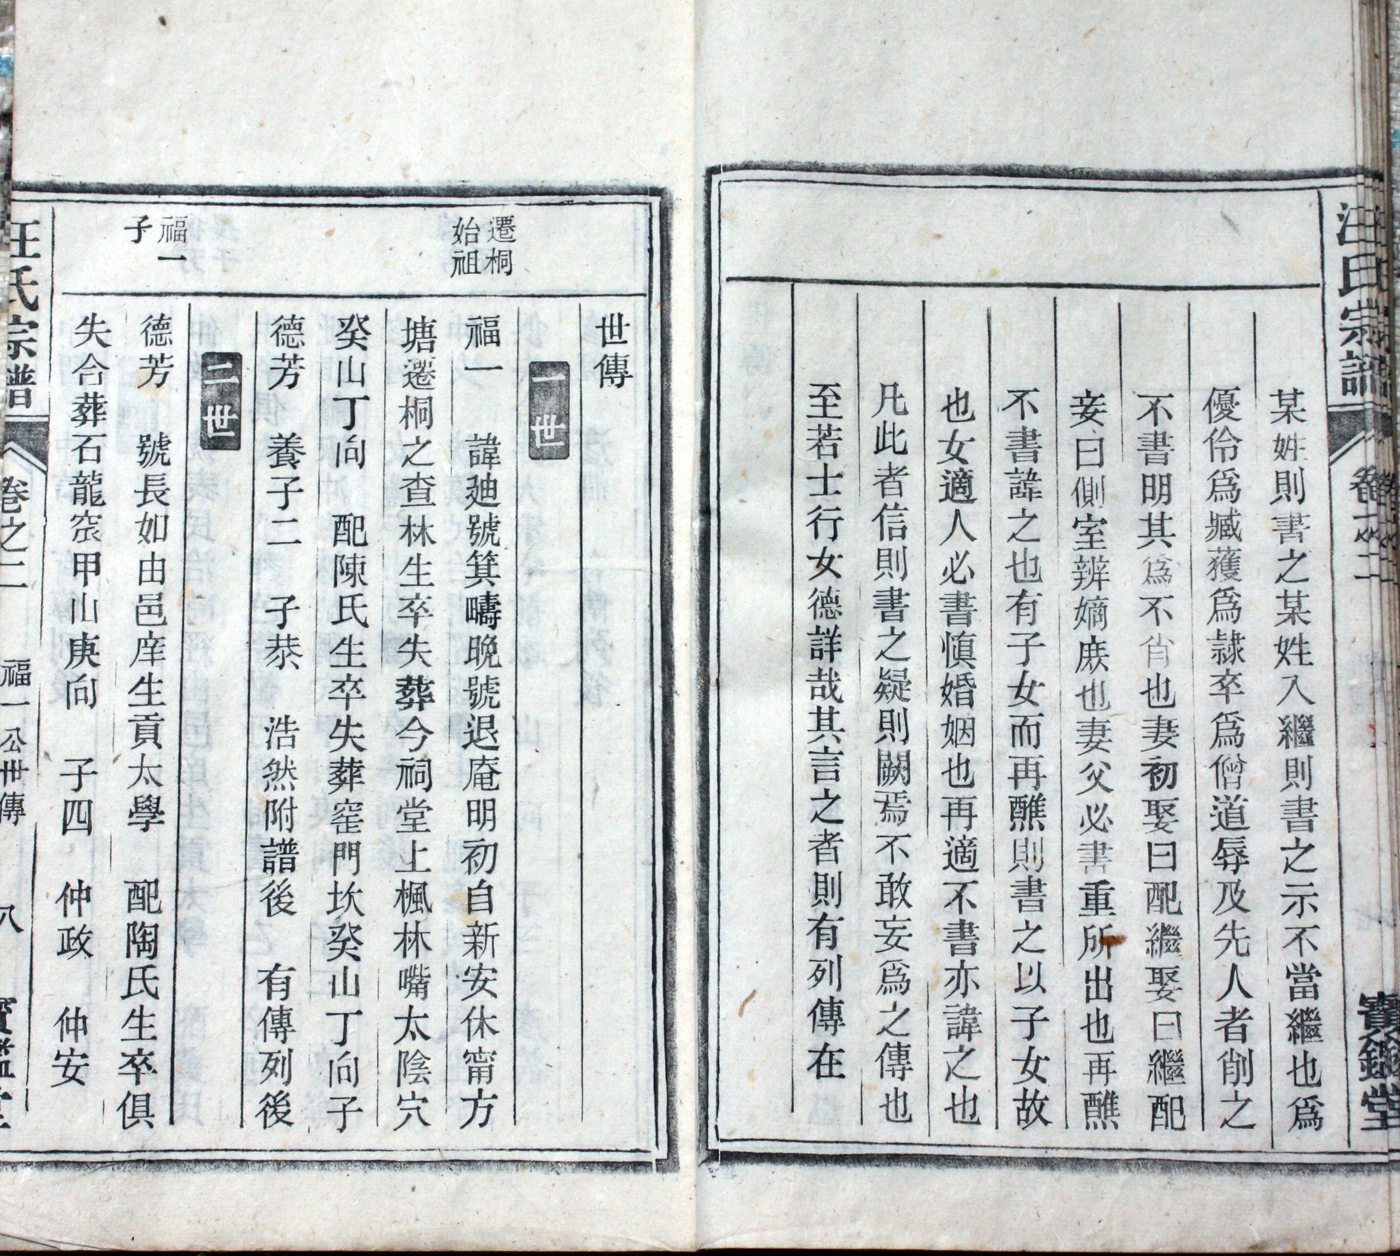 汪氏宗譜
卷之二
寶鑑堂
某姓則書之某姓入繼則書之示不當繼也爲
優伶爲臧獲爲隸卒爲僧道辱及先人者削之
不書明其爲不肖也妻初娶曰配繼娶曰繼配
妾曰側室辨嫡庶也妻父必書重所出也再醮
不書諱之也有子女而再醮則書之以子女故
也女適人必書慎婚姻也再適不書亦諱之也
凡此者信則書之疑則闕焉不敢妄爲之傳也
至若士行女德詳哉其言之者則有列傳在
世傳
一世
遷桐
始祖
福一 諱廸號箕疇晚號退庵明初自新安休甯方
塘遷桐之查林生卒失葬今祠堂上楓林嘴太陰穴
癸山丁向 配陳氏生卒失葬窑門坎癸山丁向子
德芳 養子二 子恭 浩然附譜後 有傳列後
二世
福一
子
德芳 號長如由邑庠生貢太學 配陶氏生卒俱
失合葬石龍㝐甲山庚向 子四 仲政 仲安
汪氏宗譜
卷之二
福一公世傳
八
寶鑑堂